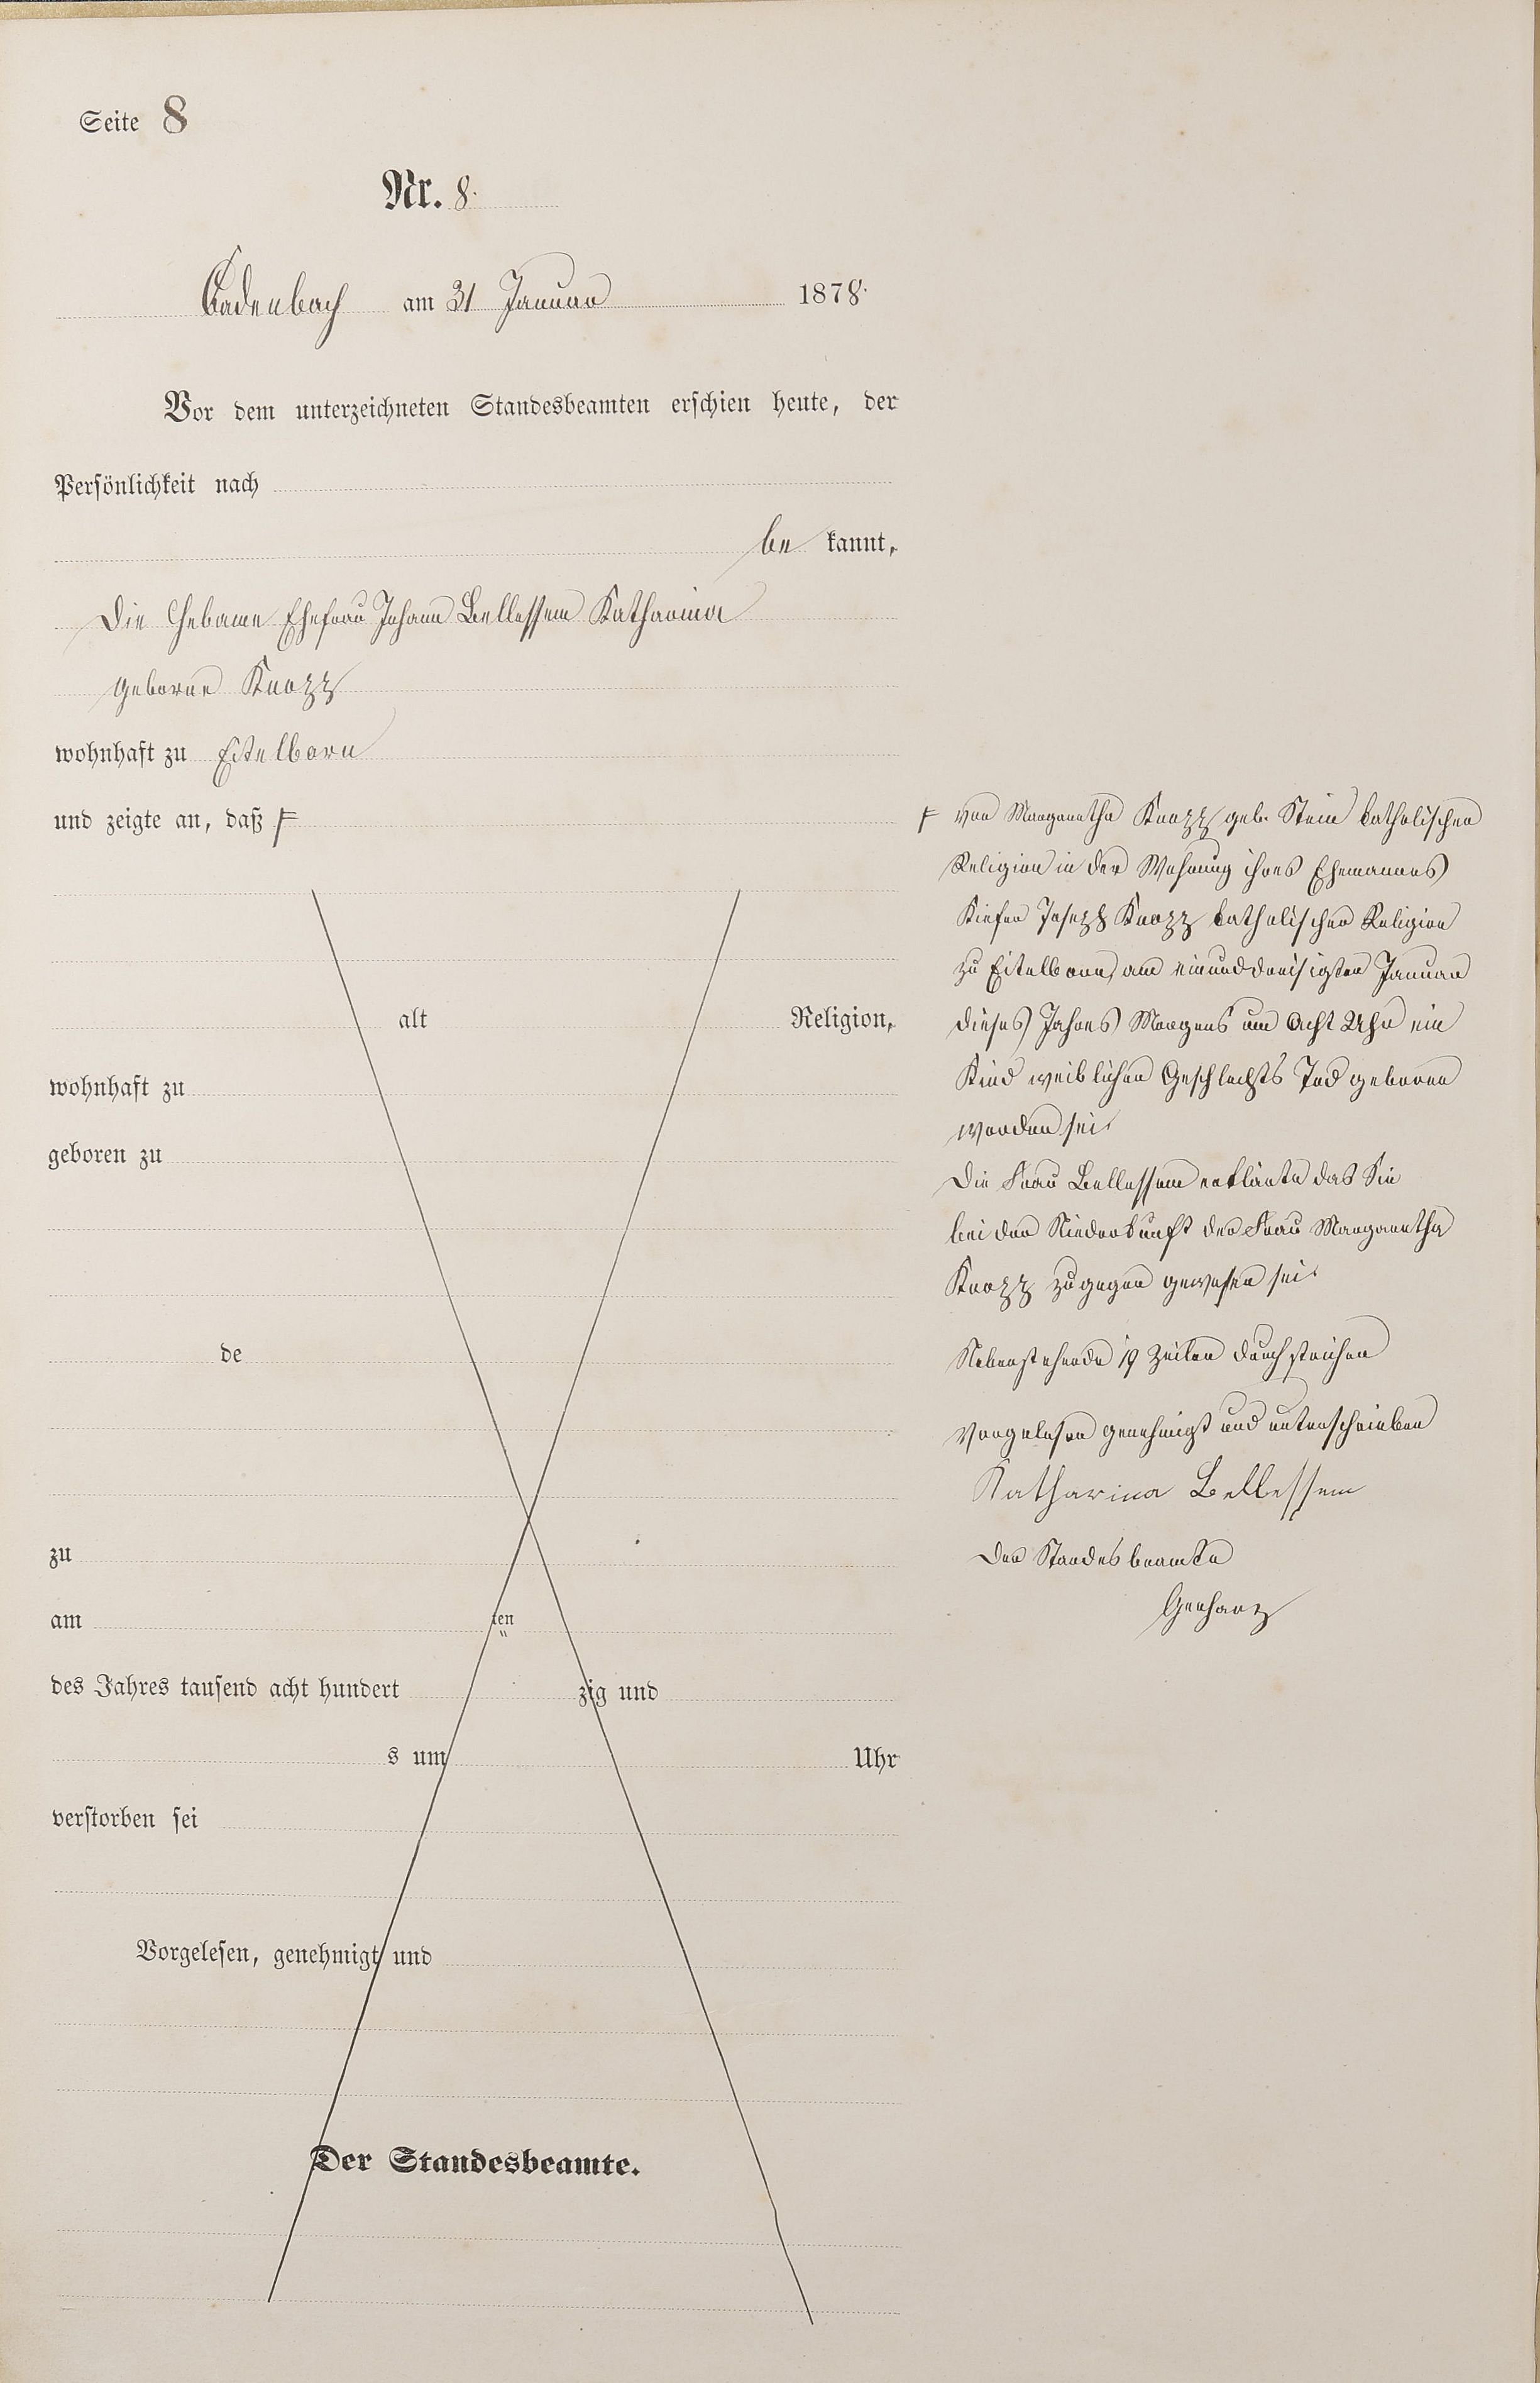 Seite 8
Nr. 8.
Cadenbach am 31 Januar 1878.
Vor dem unterzeichneten Standesbeamten erschien heute, der
Persönlichkeit nach
be kannt,
Die Hebame Ehefrau Johann Bellessem Katharina
geborne Knopp
wohnhaft zu Eitelborn
und zeigte an, daß F
alt Religion,
wohnhaft zu
geboren zu
de
zu
am ten
des Jahres tausend acht hundert zig und
s um Uhr
verstorben sei
Vorgelesen, genehmigt und
Der Standesbeamte.
F von Margaretha Knopp geb. Stein katholischer
Religion in der Wohnung ihres Ehemannes
Kiefer Joseph Knopp katholischer Religion
zu Eitelborn, am einunddreisigsten Januar
dieses Jahres Morgens um Acht Uhr ein
Kind weiblichen Geschlechts Tod geboren
worden sei.
Die Frau Bellessem erklärte das Sie
bei der Niederkunft der Frau Margaretha
Knopp zugegen gewesen sei.
Nebenstehende 19 Zeilen durchstrichen
Vorgelesen genehmigt und unterschrieben
Katharina Bellessem
Der Standesbeamte
Gerharz